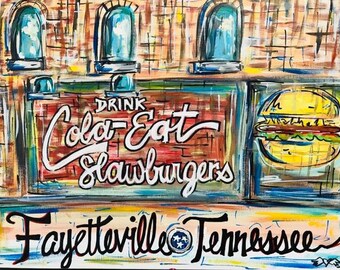 DRINK
Cola-Eat
Slawburgers
Fayetteville Tennessee